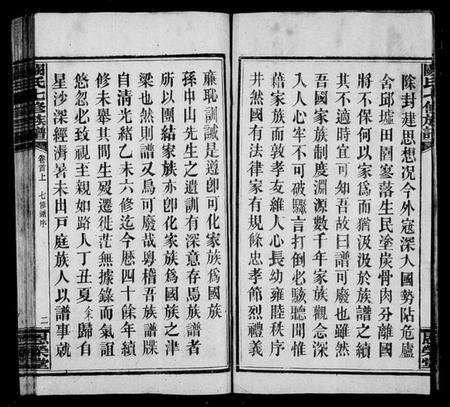 除封建思想况今外寇深入國勢阽危廬
舍邱墟田園寥落生民塗炭骨肉分離國
將不保何以家爲而猶汲汲於族譜之續
其不適時宜可知吾故曰譜可廢也雖然
吾國家族制度淵源數千年家族觀念深
入人心牢不可破驟言打倒必駭聽聞惟
藉家族而敦孝友維人心長幼雍睦秩序
井然國有法律家有規條忠孝節烈禮義
廉恥訓誡是遵卽可化家族爲國族
孫中山先生之遺訓有深意存焉族譜者
所以團結家族亦卽化家族爲國族之津
梁也然則譜又烏可廢哉粤稽吾族譜牒
自清光緒乙未六修迄今歷四十餘年續
修未舉其間生歿遷徙茫無據錄而氣誼
悠忽必致視至親如路人丁丑夏余歸自
星沙深經濟著未出戸庭族人以譜事就
關氏七修族譜
卷首上 七修譜序
二